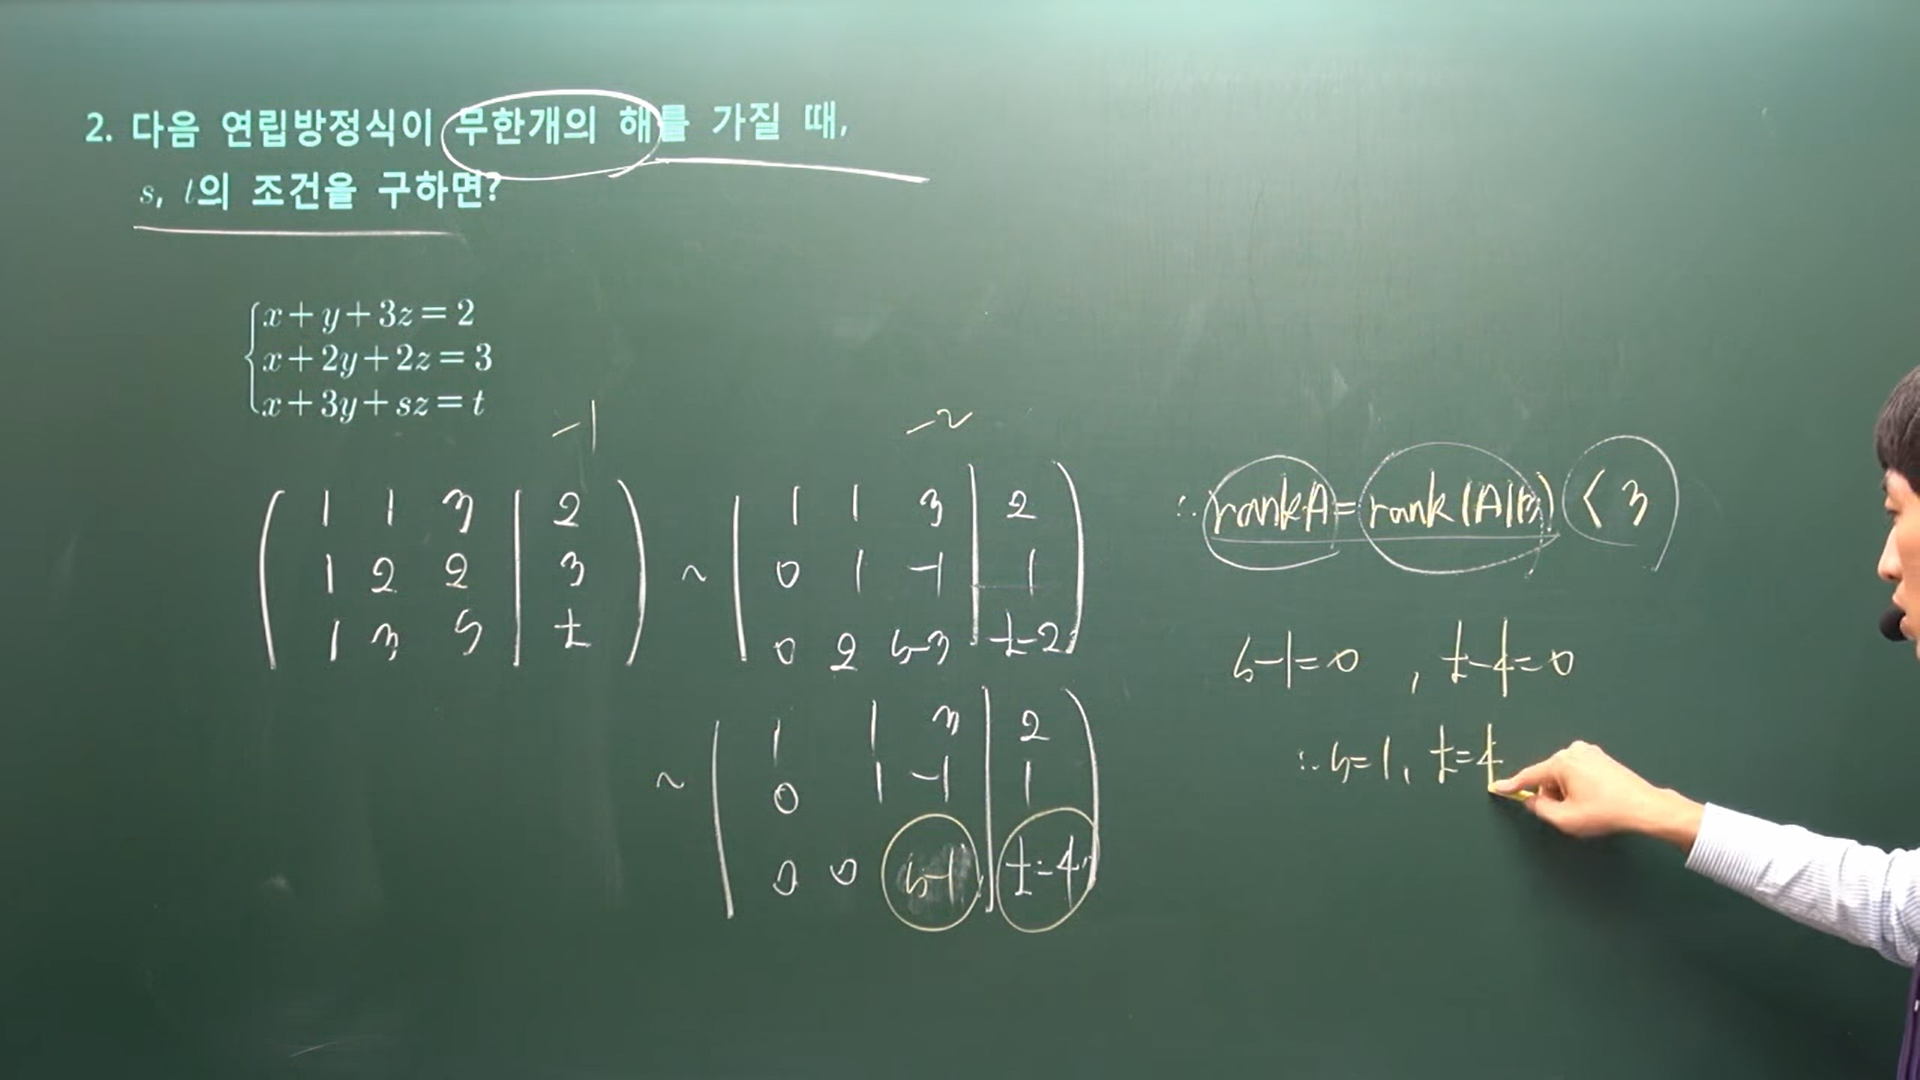 2. 다음 연립방정식이 무한개의 해를 가질 때,
s, t의 조건을 구하면?
x+y+3z=2
x+2y+2z=3
x+3y+sz=t
-1
1 1 3 | 2
1 2 2 | 3
1 3 s | t
~
-2
1 1 3 | 2
0 1 -1 | 1
0 2 s-3 | t-2
~
1 1 3 | 2
0 1 -1 | 1
0 0 s-1 | t-4
∴ rankA=rank(A|B) < 3
s-1=0 , t-4=0
∴ s=1, t=4